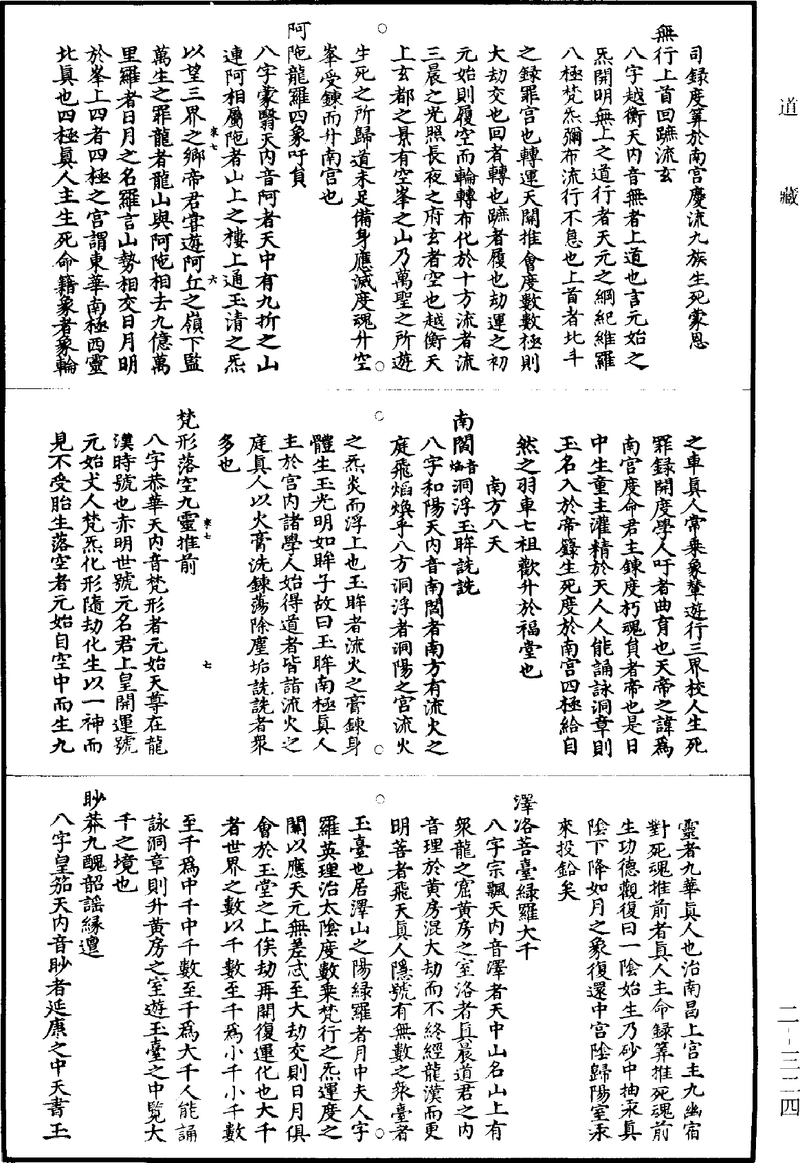 道藏
司錄度筭於南宮慶流九族生死蒙恩
無行上首回蹠流玄
八字越衡天内音無者上道也言元始之
炁開明無上之道行者天元之綱紀維羅
八極梵炁彌布流行不息也上首者北斗
之錄罪宮也轉運天關推會度數數極則
大劫交也回者轉也蹠者履也劫運之初
元始則履空而輪轉布化於十方流者流
三晨之光照長夜之府玄者空也越衡天
上玄都之景有空峯之山乃萬聖之所遊
生死之所歸道未足備身應滅度魂升空
峯受鍊而升南宮也
阿陁龍羅四象吁員
八字蒙翳天内音阿者天中有九折之山
連阿相屬陁者山上之樓上通玉清之炁
以望三界之鄉帝君常遊阿丘之嶺下監
萬生之罪龍者龍山與阿陁相去九億萬
里羅者日月之名羅言山勢相交日月明
於峯上四者四極之宮謂東華南極西靈
北真也四極真人主生死命籍象者象輪
之車真人常乗象輦遊行三界校人生死
罪錄開度學人吁者曲育也天帝之諱為
南宮度命君主鍊度朽魂員者帝也是日
中生童主灌精於天人人能誦詠洞章則
玉名入於帝籙生死度於南宮四極給自
然之羽車七祖歡升於福堂也
南方八天
南閻音焔洞浮玉眸詵詵
八字和陽天内音南閻者南方有流火之
庭飛焰煥乎八方洞浮者洞陽之宮流火
之炁炎而浮上也玉眸者流火之膏鍊身
體生玉光明如眸子故曰玉眸南極真人
主於宮内諸學人始得道者皆詣流火之
庭真人以火膏洗鍊蕩除塵垢詵詵者衆
多也
梵形落空九靈推前
八字恭華天内音梵形者元始天尊在龍
漢時號也赤明世號元名君上皇開運號
元始丈人梵炁化形隨劫化生以一神而
見不受胎生落空者元始自空中而生九
靈者九華真人也治南昌上宮主九幽宿
對死魂推前者真人主命錄筭推死魂前
生功德觀復曰一陰始生乃砂中抽汞真
陰下降如月之象復還中宮陰歸陽室汞
來投鉛矣
澤洛菩臺綠羅大千
八字宗飄天内音澤者天中山名山上有
衆龍之窟黃房之室洛者真晨道君之内
音理於黃房混大劫而不終經龍漢而更
明菩者飛天真人隱號有無數之衆臺者
玉臺也居澤山之陽綠羅者月中夫人字
羅英理治太陰度數乗梵行之炁運度之
關以應天元無差忒至大劫交則日月俱
會於玉堂之上俟劫再開復運化也大千
者世界之數以千數至千為小千小千數
至千為中千中千數至千為大千人能誦
詠洞章則升黃房之室遊玉臺之中覽大
千之境也
眇莽九醜韶謡緣邅
八字皇笳天内音眇者延康之中天書玉
二-三二四